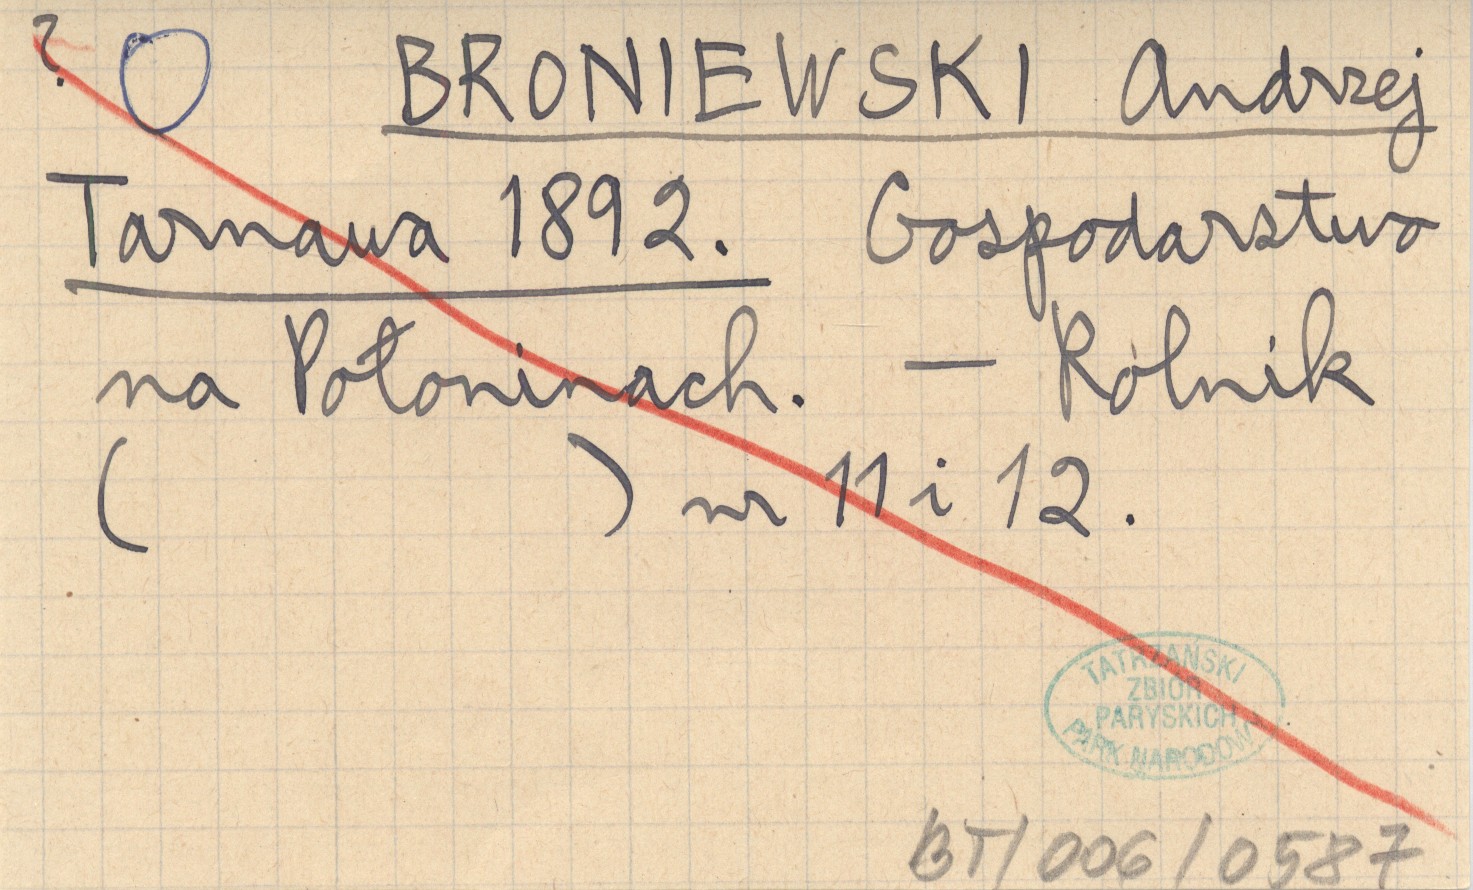 ? BRONIEWSKI Andrzej
Tarnawa 1892. Gospodarstwo
na Połoninach. — Rolnik
( ) nr 11 i 12.
TATRZAŃSKI
ZBIÓR
PARYSKICH
PARK NARODOWY
BT/006/0587